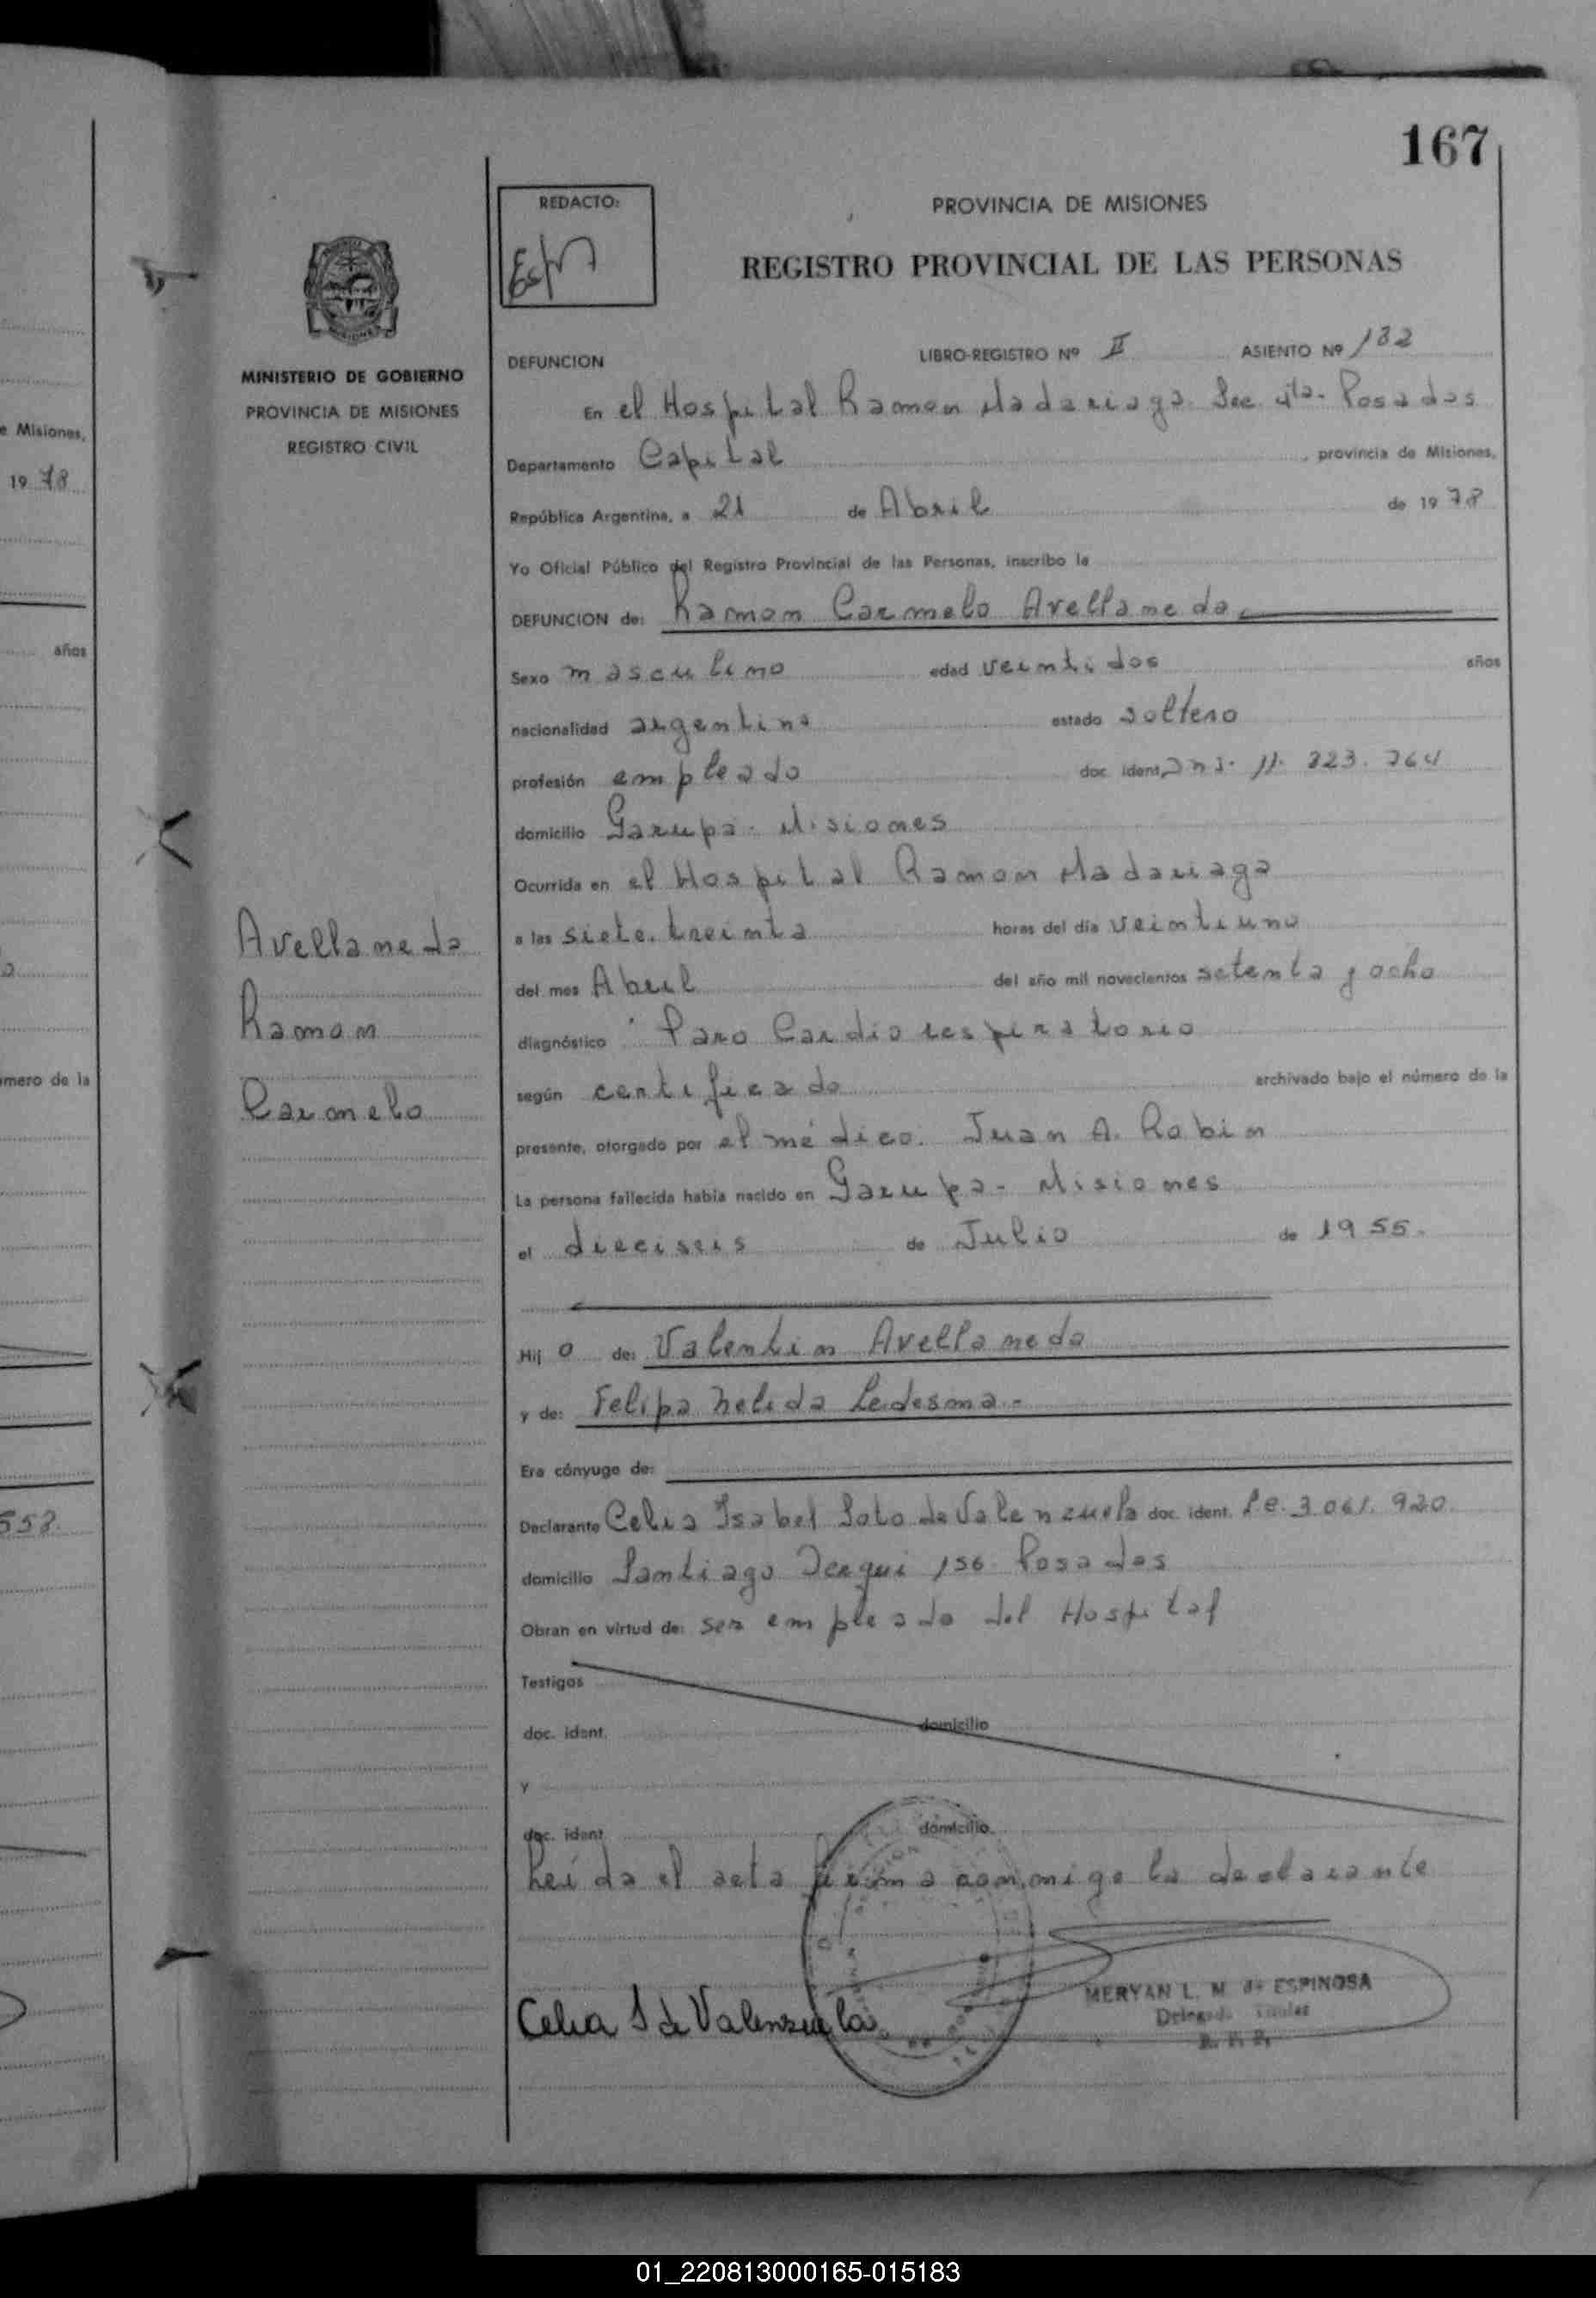 167
REDACTO:
PROVINCIA DE MISIONES
REGISTRO PROVINCIAL DE LAS PERSONAS
MINISTERIO DE GOBIERNO
PROVINCIA DE MISIONES
REGISTRO CIVIL
DEFUNCION LIBRO-REGISTRO Nº II ASIENTO Nº 182
En el Hospital Ramon Madariaga. Sec 4ta- Posadas
Departamento Capital, provincia de Misiones,
República Argentina, a 21 de Abril de 1978
Yo Oficial Público del Registro Provincial de las Personas, inscribo la
DEFUNCION de: Ramon Carmelo Avellaneda
Sexo masculino edad veintidos años
nacionalidad argentina estado soltero
profesión empleado doc. ident. 11. 323. 264
domicilio Garupa - Misiones
Ocurrida en el Hospital Ramon Madariaga
a las siete. treinta horas del día veintiuno
del mes Abril del año mil novecientos setenta y ocho
diagnóstico Paro Cardio respiratorio
según certificado archivado bajo el número de la
presente, otorgado por el médico. Juan A. Robin
La persona fallecida había nacido en Garupa - Misiones
el dieciseis de Julio de 1955.
Hijo de: Valentin Avellaneda
y de: Felipa Nelida Ledesma.-
Era cónyuge de:
Declarante Celia Isabel Soto de Valenzuela doc. ident. L.e. 3.061.920.
domicilio Santiago Derqui 156 Posadas
Obran en virtud de: ser empleado del Hospital
Testigos
doc. ident. domicilio
y
doc. ident. domicilio
Leída el acta firma conmigo la declarante
Celia S de Valenzuela
MERYAN L. M. de ESPINOSA
Delegada Titular
R. P. P.
Avellaneda
Ramon
Carmelo
e Misiones,
1978
años
mero de la
558.
01_220813000165-015183